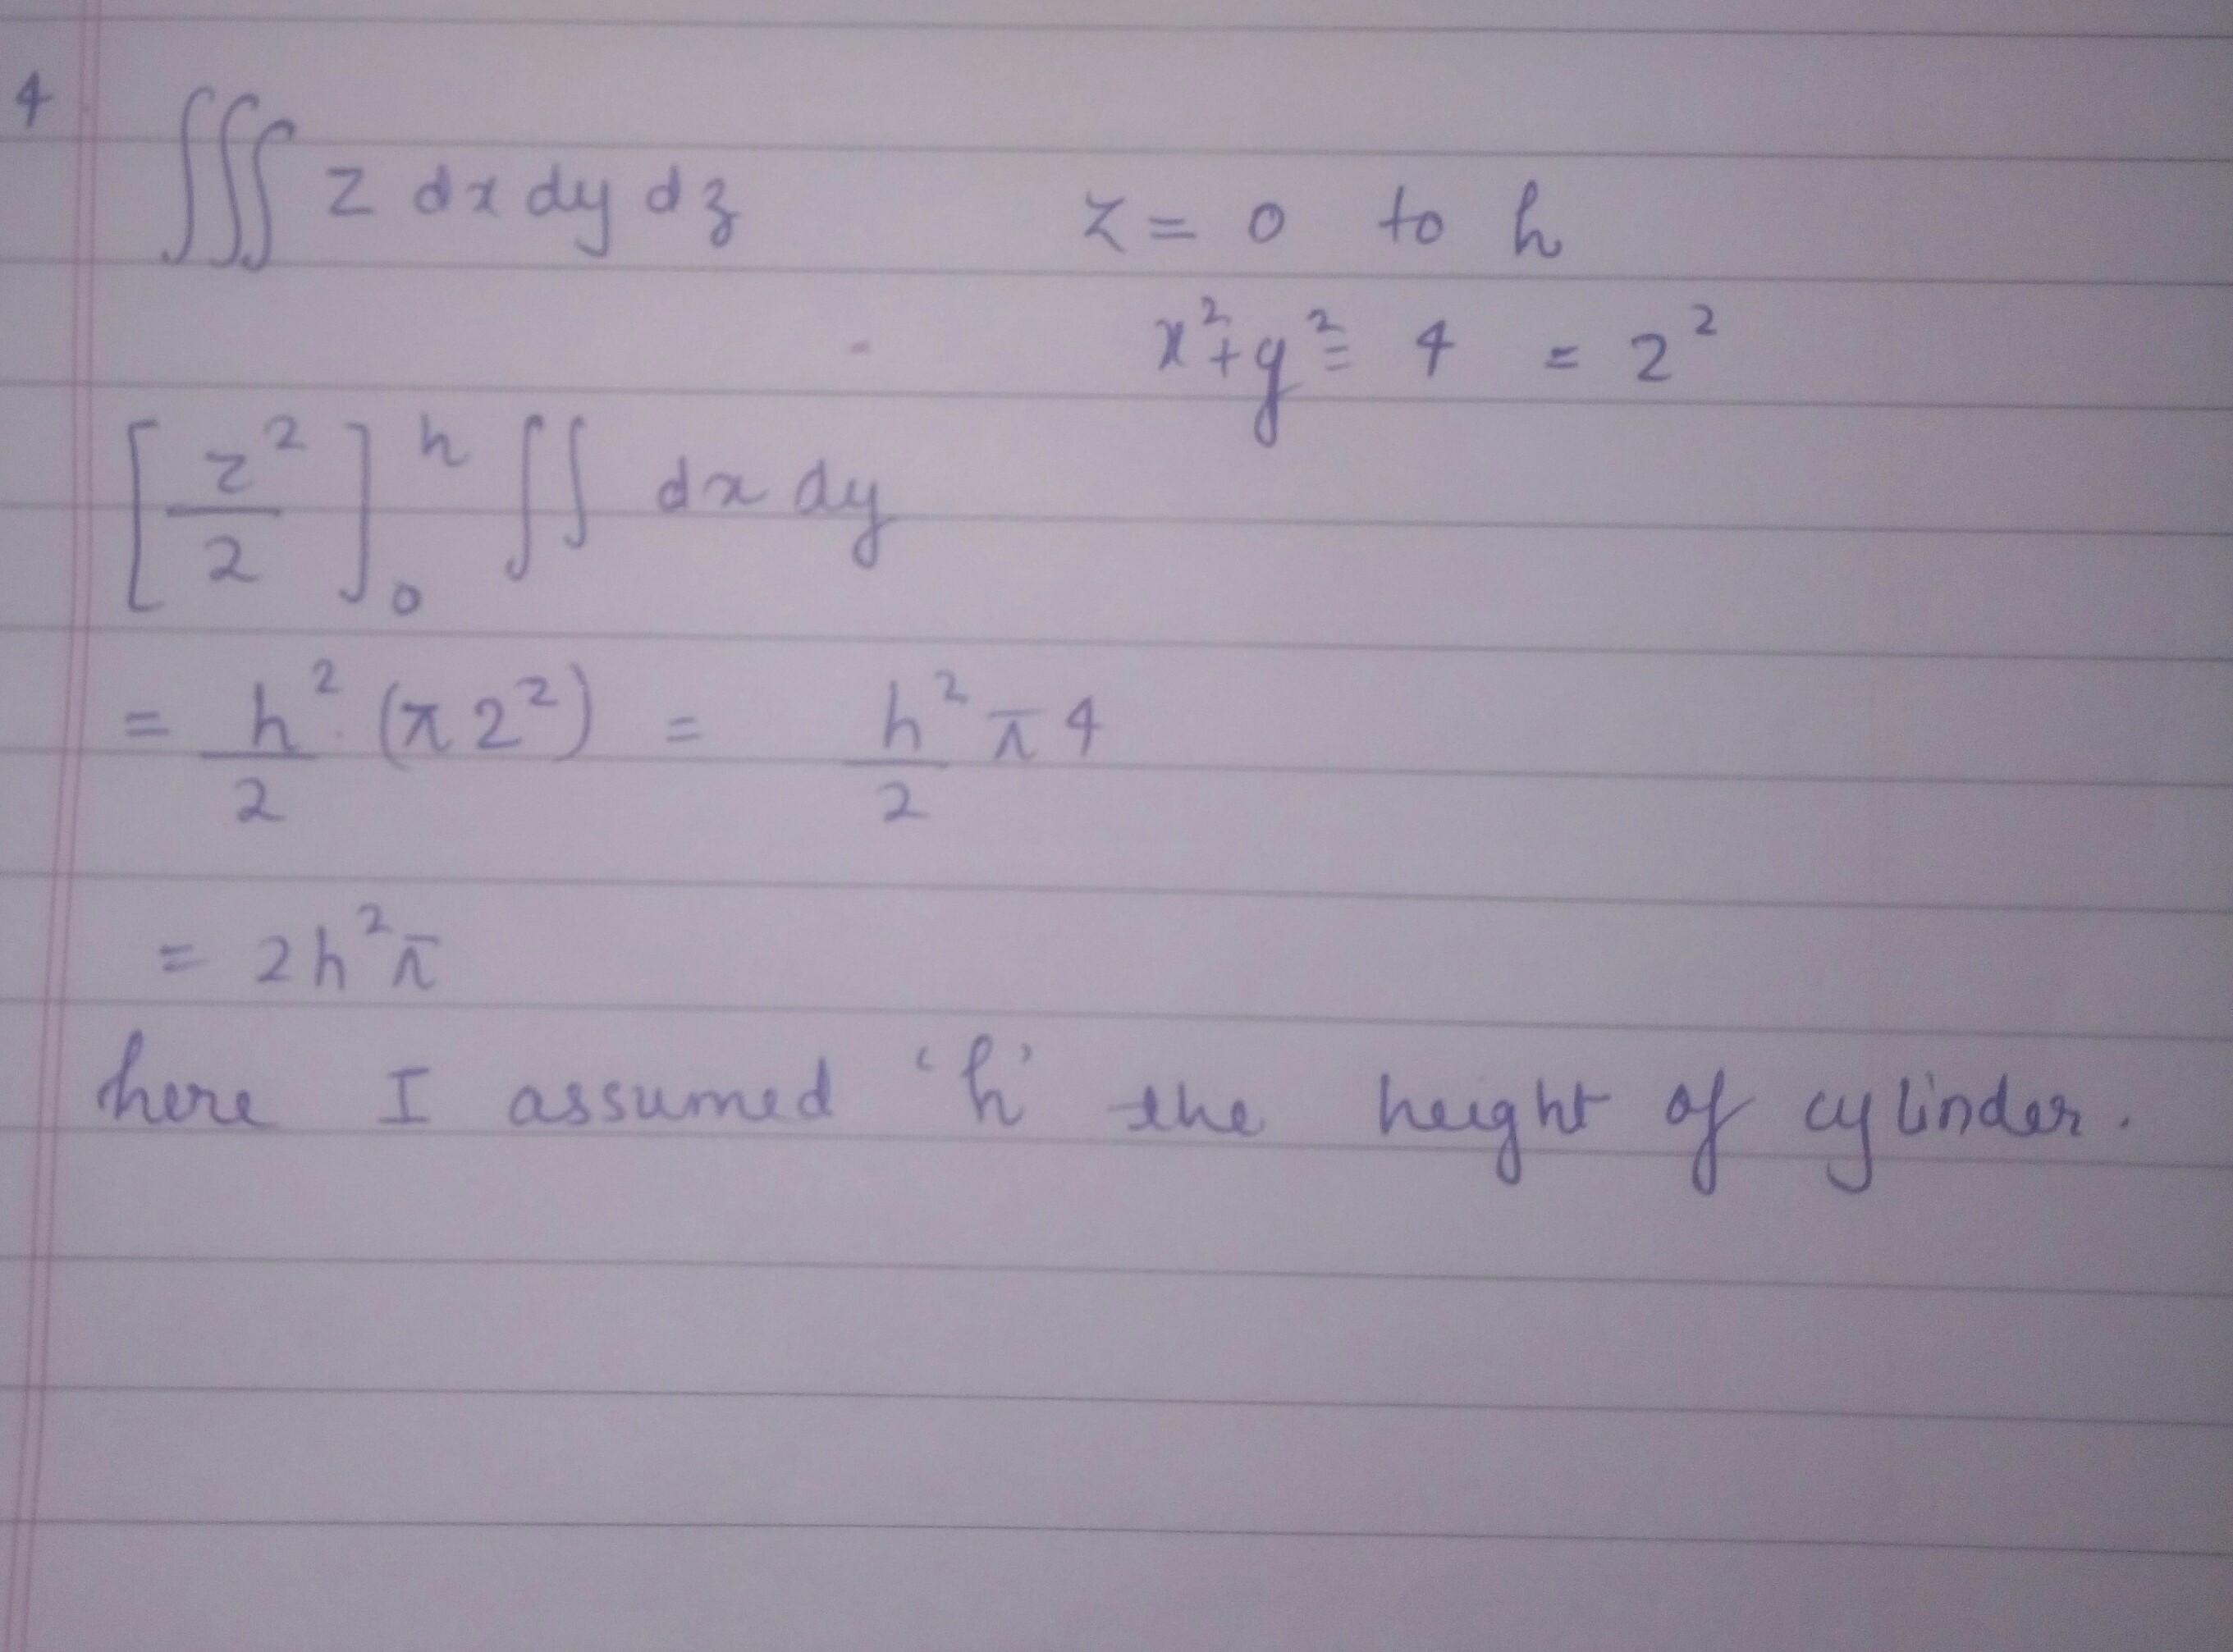 4
∭ z dx dy dz z = 0 to h
x² + y² = 4 = 2²
[z²/2]₀ʰ ∬ dx dy
= h²/2 · (π 2²) = h²/2 π 4
= 2h²π
here I assumed 'h' the height of cylinder.